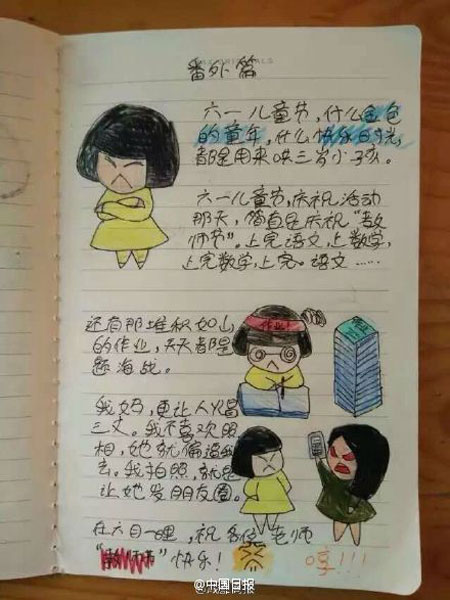 番外篇
六一儿童节,什么金色
的童年,什么快乐时光,
都是用来哄三岁小孩。
六一儿童节,庆祝活动
那天,简直是庆祝"教
师节"。上完语文,上数学,
上完数学,上完。语文……
还有那堆积如山
的作业,天天都是
题海战。
作业!
我妈,更让人火冒
三丈。我不喜欢照
相,她就偏逼我
去。我拍照,就是
让她发朋友圈。
在六月一,祝各位老师
"教师节"快乐!
哼!!!
@中国日报